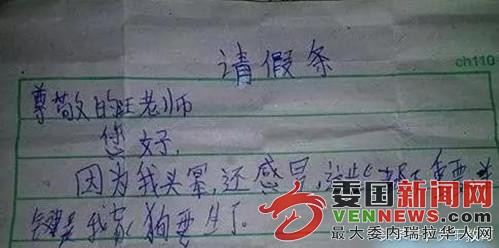 请假条
ch110
尊敬的旺老师
您好,
因为我头晕,还感冒,这些都不重要,关
键是我家狗要生了。
委国新闻网
VENNEWS.com
最大委内瑞拉华人网